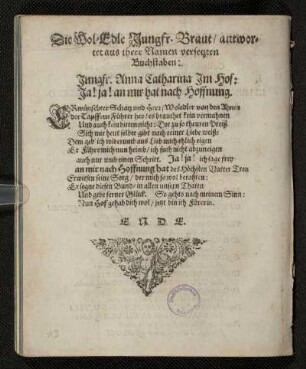 Die Wol-Edle Jungfr. Braut/ antwor-
tet aus ihren Namen versetzten
Buchstaben:
Jungfr. Anna Catharina Im Hof:
Ja! ja! an mir hat nach Hoffnung.
Erwünschter Schatz und Herr/ Woledler von den Ahnen
der Tapffern Führer her/ es brauchet kein vermahnen
Und auch kein bitten nicht: Der zu so theuren Preiß
Sich mir heut selbst gibt nach reiner Liebe weiß:
Dem geb' ich wiederumb aus Lieb mich ehlich eigen
Er Führe mich nun heimb/ ich such nicht abzuneigen
auch nur umb einen Schritt. Ja! ja! ich sage frey
an mir nach Hoffnung hat des Höchsten Vatter Treu
Erwiesen seine Sorg/ der mich so wol berahten:
Er segne diesen Bund/ in allen unsren Thaten
Und gebe ferner Glück. So gehts nach meinem Sinn:
Nun Hof gehab dich wol/ jetzt bin ich Fürerin.
E. N. D. E.